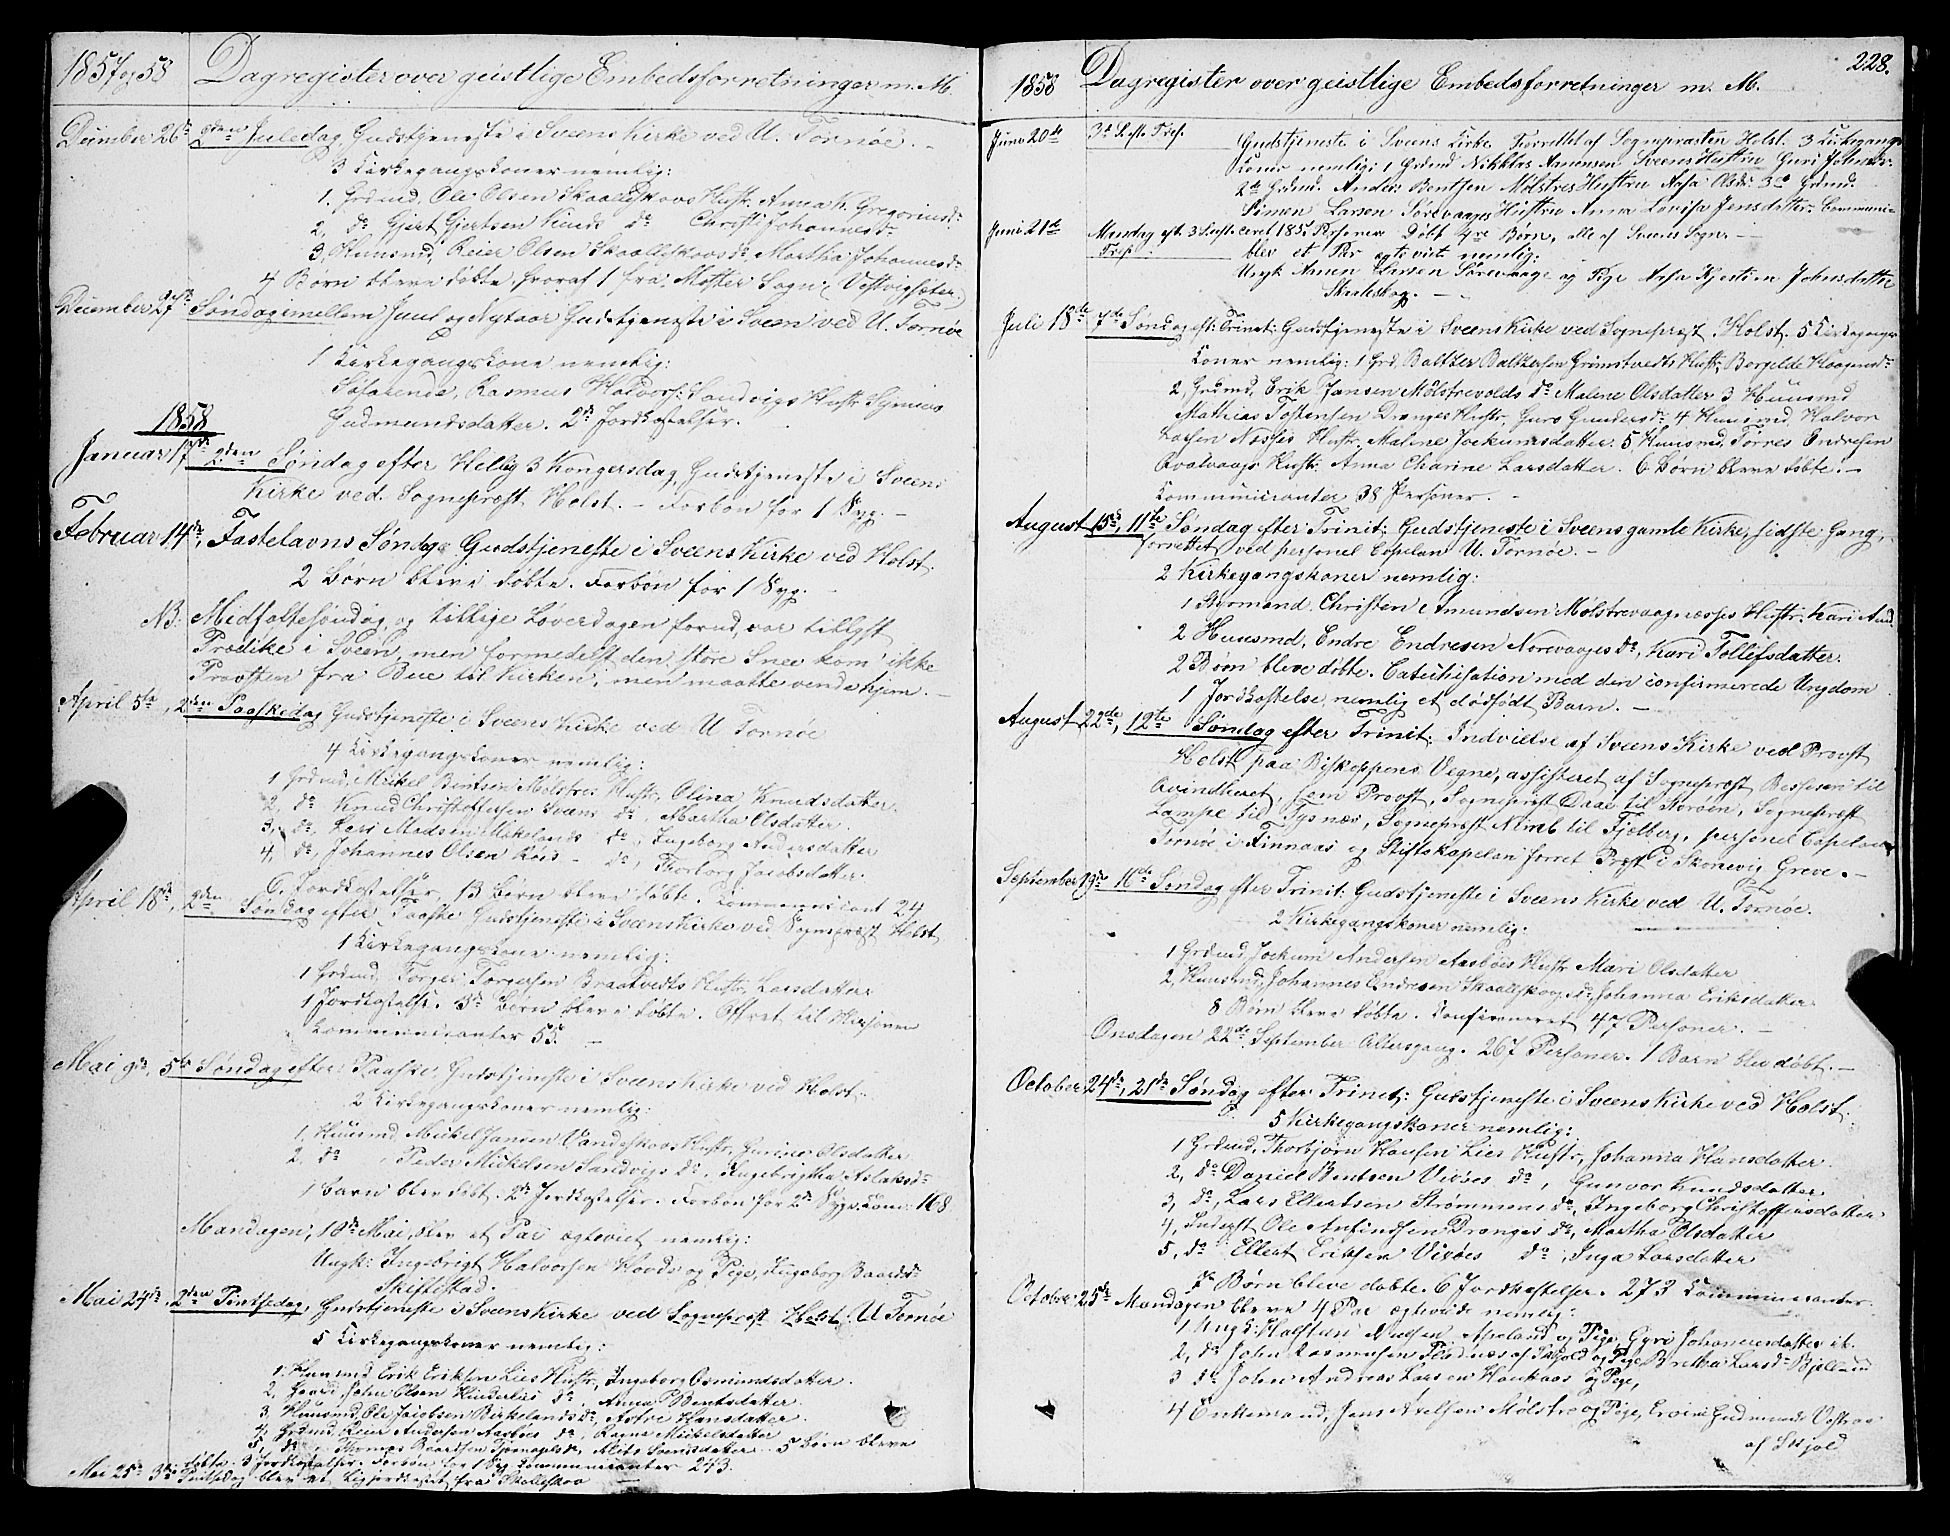 1857 og 58 Dagregister over geistlige Embedsforretninger m. M.
December 26de 2den Juledag, Gudstjeneste i Sveens Kirke ved U. Tornøe. -
3 Kirkegangskoner nemlig:
1. Grdmd, Ole Olsen Skaalleskovs Hustr. Anna K. Gregoriusdr
2, do Gjert Gjertsen do Christi Johannesdr
3, Huusmd, Reier Olsen Skaalleskovs do, Martha Johannesdr
4 Børn bleve døbte, hvoraf 1 fra Moster Sogn (Vestvig
December 27de Søndag imellem Juul og Nytaar Gudstjeneste i Sveen ved U. Tornøe
1 Kirkegangskone nemlig:
Søfarende, Rasmus Halvors: Sandvigs Hustr
Gudmundsdatter. 2de Jordkastelser.
1858
Januar 17de 2den Søndag efter Hellig 3 Kongersdag, Gudstjeneste i Sveens
Kirke ved Sognepræst Holst. - Forbøn for 1 Syg. -
Februar 14de, Fastelavns Søndag Gudstjeneste i Sveens Kirke ved Holst.
2 Børn bleve døbte. Forbøn for 1 Syg. -
NB. Midfastesøndag, og tillige Løverdagen forud, var tillyst
Prædike i Sveen, men formedelst den store Snee kom ikke
Provsten fra Bue til Kirken, men maatte vende hjem. -
April 5te, 2den Paaskedag Gudstjeneste i Sveens Kirke ved U Tornøe
4 Kirkegangskoner nemlig:
1 Grdmd, Mickel Bentsen Mølstres Hustr, Olina Knudsdatter
2, do Knud Christoffersen Sveens do, Martha Olsdatter.
3, do, Lars Madsen do, Ingeborg Andersdatter
4, do, Johannes Olsen - do, Thorborg Jacobsdatter.
6. Jordkastelser, 13 Børn bleve døbte. Communicant 24
April 18de, 2den Søndag efter Paaske Gudstjeneste i Sveens Kirke ved Sognepræst Holst
1 Kirkegangskone nemlig:
1 Grdmd, Torger Torgersen Braatvedts Hustr, Larsdatter
1 Jordkastelse. 3de Børn bleve døbte. Offret til Missionen
Communicanter 55. -
Mai 9de, 5te Søndag efter Paaske, Gudstjeneste i Sveens Kirke ved Holst.
2 Kirkegangskoner nemlig:
1, Huusmd Mickel Jansen Vandeskovs Hustr, Gurine Olsdatter
2, do, Peder Mickelsen Sandvigs do, Ingebrigtha Aslaksdr
1 Barn blev døbt. 2de Jordkastelser. Forbøn for 2de Syge. Com: 168
Mandagen, 10de Mai, blev et Par egteviet nemlig:
Ungk: Ingebrigt Halvorsen Hovde og Pige, Ingeborg Baardsdr
Skiftestad.
Mai 24de, 2den Pintsedag, Gudstjeneste i Sveens Kirke ved Sognepræst Holst. U Tornøe
5 Kirkegangskoner nemlig:
1. Huusmd Erik Eriksen Lies Hustr, Ingeborg Osmundsdatter.
2, Gaard John Olsen do, Anna Bentsdatter
3, Huusmd, Ole Jacobsen Birkelands do, Astri Hansdatter
4, Grdmd, Reier Andersen Aasbøes do, Ragna Mickelsdatter
5, do, Thomas Baardsen do, Alits Svensdatter. 5 Børn bleve
døbte. 3 Jordkastelser. Forbøn for 1 Syg. Communicanter 243.
Mai 25de 3die Pintsedag blev et Lig jordkastet fra Skalleskov
228.
1858 Dagregister over geistlige Embedsforretninger m. M.
Juni 20de 3d S. eft. Tref. Gudstjeneste i Sveens Kirke Forrettet af Sognepræsten Holst. 3 Kirkegangs
Koner nemlig: 1 Grdmd Nikklas Amonsen Sveens Hustru Guri Johnsdr.
2de Grdmd. Anders Bentsen Mølstres Hustru Aasa Olsdr. 3de Grdmd.
Simen Larsen Sørevaages Hustru Anna Lovisa Jensdatter. Communi-
ceret 185 Personer Døbt 4re Børn, alle af Sveens Sogn. -
Juni 21de Mandag eft. 3 S. eft. Tref. blev et Par egteviet nemlig:
Ungk Larsen Sørevaage og Pige Aasa Kjerstine Johnsdatter
Skaaleskog. -
Juli 18de 7de Søndag eft: Trinit: Gudstjeneste i Sveens Kirke ved Sognepræst Holst. 5 Kirkegangs
Koner nemlig: 1 Grd, Baltzer Baltzersen Grimstvedts Hustr, Borgilde Haagensdr
2, Grdmd, Erik Jansen Mølstrevolds do Malene Olsdatter 3 Huusmd
Mathias Tostensen Dranges Hustr, Guro Gundersdr. 4 Huusmd, Halvor
Larsen Næsses Hustr. Malene Jockumsdatter. 5 Huusmd, Tørres Endresen
Qvalvaags Hustr. Anna Charine Larsdatter. 6 Børn bleve døbte. -
Communicanter 38 Personer. -
August 15de, 11te Søndag efter Trinit: Gudstjeneste i Sveens gamle Kirke, sidste Gang,
forrettet ved personel Capelan U. Tornøe. -
2 Kirkegangskoner nemlig:
1 Styrmand Christen Amundsen Mølstrevaagnæsses Hustr. Kari And
2 Huusmd, Endre Endresen Norevaages do, Kari Tollefsdatter.
2 Børn bleve døbte. Catechisation med den confirmerede Ungdom
1 Jordkastelse, nemlig et dødfødt Barn. -
August 22de, 12te Søndag efter Trinit: Indvielse af Sveens Kirke ved Provst
Holst paa Biskoppens Vegne, assisteret af Sognepræst Bessesen til
Qvindherret, Provst, Sognepræst Daae til Storøen, Sognepræst
Lampe til Tysnæs, Sognepræst Nimb til Fjelberg, personel Capelan
Tornøe i Finnaas og Stiftskapelan forret Præst i Skonevig Greve. -
September 19de 16de Søndag efter Trinit: Gudstjeneste i Sveens Kirke ved U. Tornøe.
2 Kirkegangskoner nemlig:
1 Grdmd, Jockum Andersen Aasbøes Hustr Mari Olsdatter
2, Huusmd, Johannes Endresen Skaalleskogs do, Johanna Eriksdatter
8 Børn bleve døbte. Confirmeret 47 Personer. -
Onsdagen 22de September Altersgang. 267 Personer. 1 Barn blev døbt. -
October 24de, 21de Søndag efter Trinit: Gudstjeneste i Sveens Kirke ved Holst.
5 Kirkegangskoner nemlig:
1 Grdmd, Thorbjørn Hansen Lies Hustr, Johanna Hansdatter.
2, do Daniel Bentsen Vixøes do, Gunvor Knudsdatter
3, do, Lars Ellertsen Strømmens do, Ingeborg Christoffersdatter
4, Inderst Ole Anfindsen Dranges do, Martha Olsdatter
5, do Ellert Eriksen Vixøes do, Inga Larsdatter
Børn bleve døbte. 6 Jordkastelser. 273 Communicanter.
October 25de Mandagen bleve 4 Par egteviede nemlig:
1 Ungk: Halsten Apeland og Pige, Gyri Johannesdatter
2, do John Rasmussen af Skjold og Pige Brytha Larsdr
3 do John Andreas Larsen Haukaas og Pige,
4 Enkemand, Jens Axelsen Mølstre og Pige, Gudmunds
af Skjold